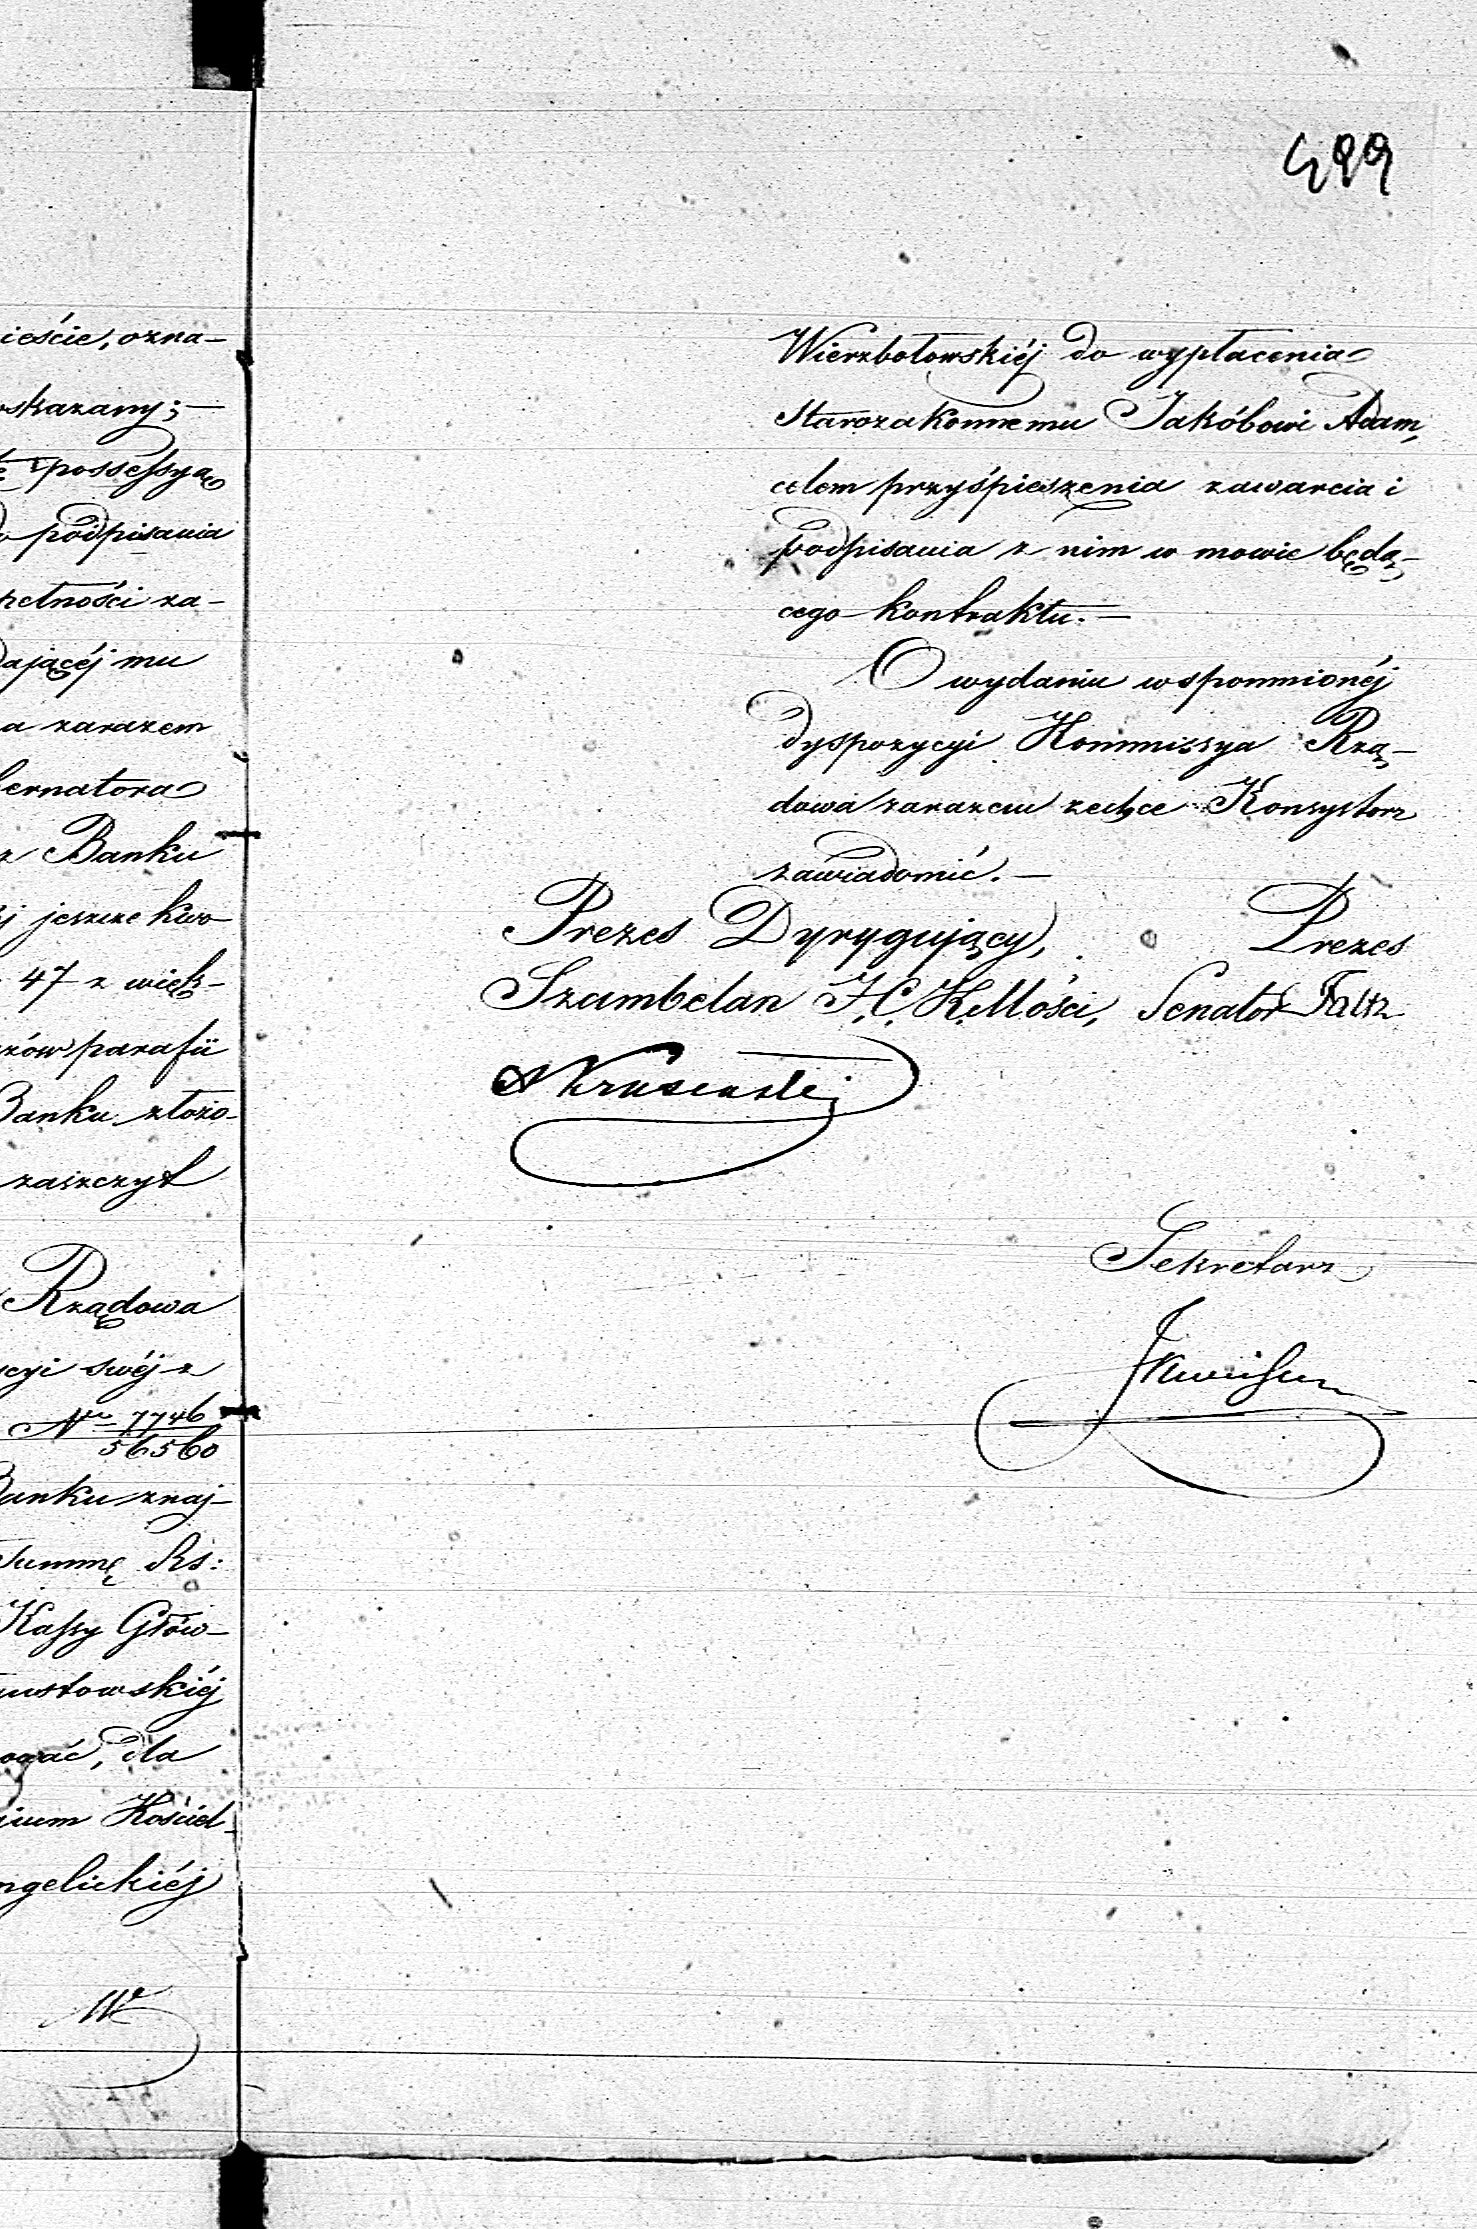 499
ieście, ozna-
skazany;-
possessyą
podpisania
rzetności za-
dającéj mu
a zarazem
bernatora
z Banku
j jeszcze kwo-
47 z więk-
rzów parafii
Banku złożo-
zaszczyt
Rządowa
cyi swéj z
Nr 7746/56560
Banku znaj-
Summę Rs:
Kassy Głów-
gustowskiéj
ogać, dla
gium Kościel-
ngelickiéj
Wierzbołowskiéj do wypłacenia
Starozakonnemu Jakóbowi Adam,
celem przyśpieszenia zawarcia i
podpisania z nim w mowie będą-
cego kontraktu.-
O wydaniu wspomnionéj
dyspozycyi Kommissya Rzą-
dowa zarazem zechce Konsystorz
zawiadomić.-
Prezes Dyrygujący, Prezes
Szambelan J.C.K.Mości, Senator
Sekretarz